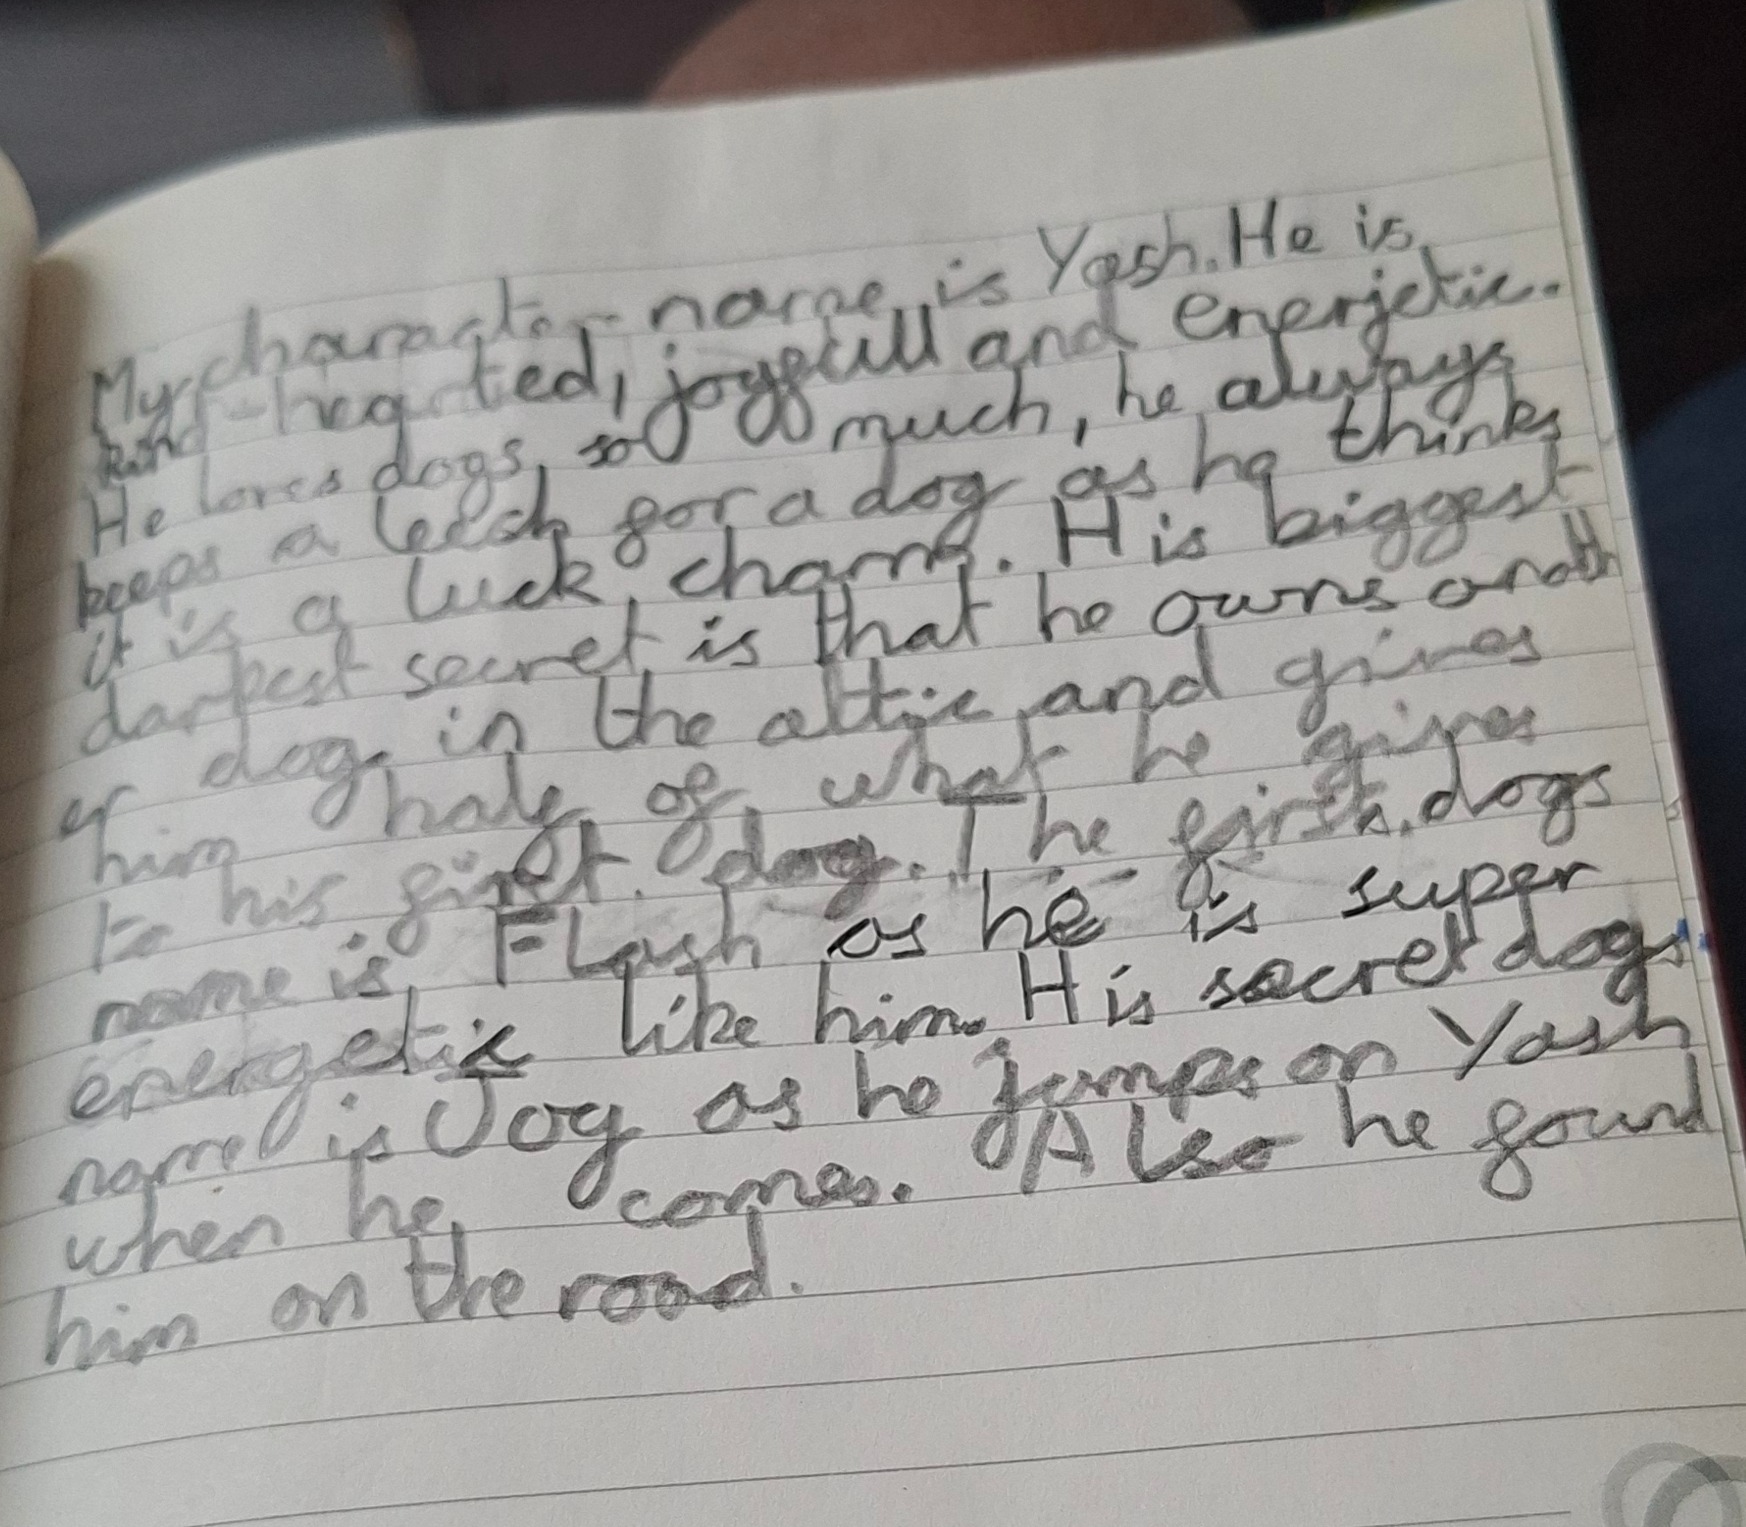 My character name is Yash. He is
kind-hearted, joyfull and energetic.
He loves dogs, so much, he always
keeps a leesh for a dog as he thinks
it is a luck charm. His biggest
darkest secret is that he owns anoth
er dog in the attic and gives
him half of what he gives
to his first dog. The first dogs
name is FLash as he is super
energetic like him. His secret dogs
name is Joy as he jumps on Yash
when he comes. ALso he found
him on the road.